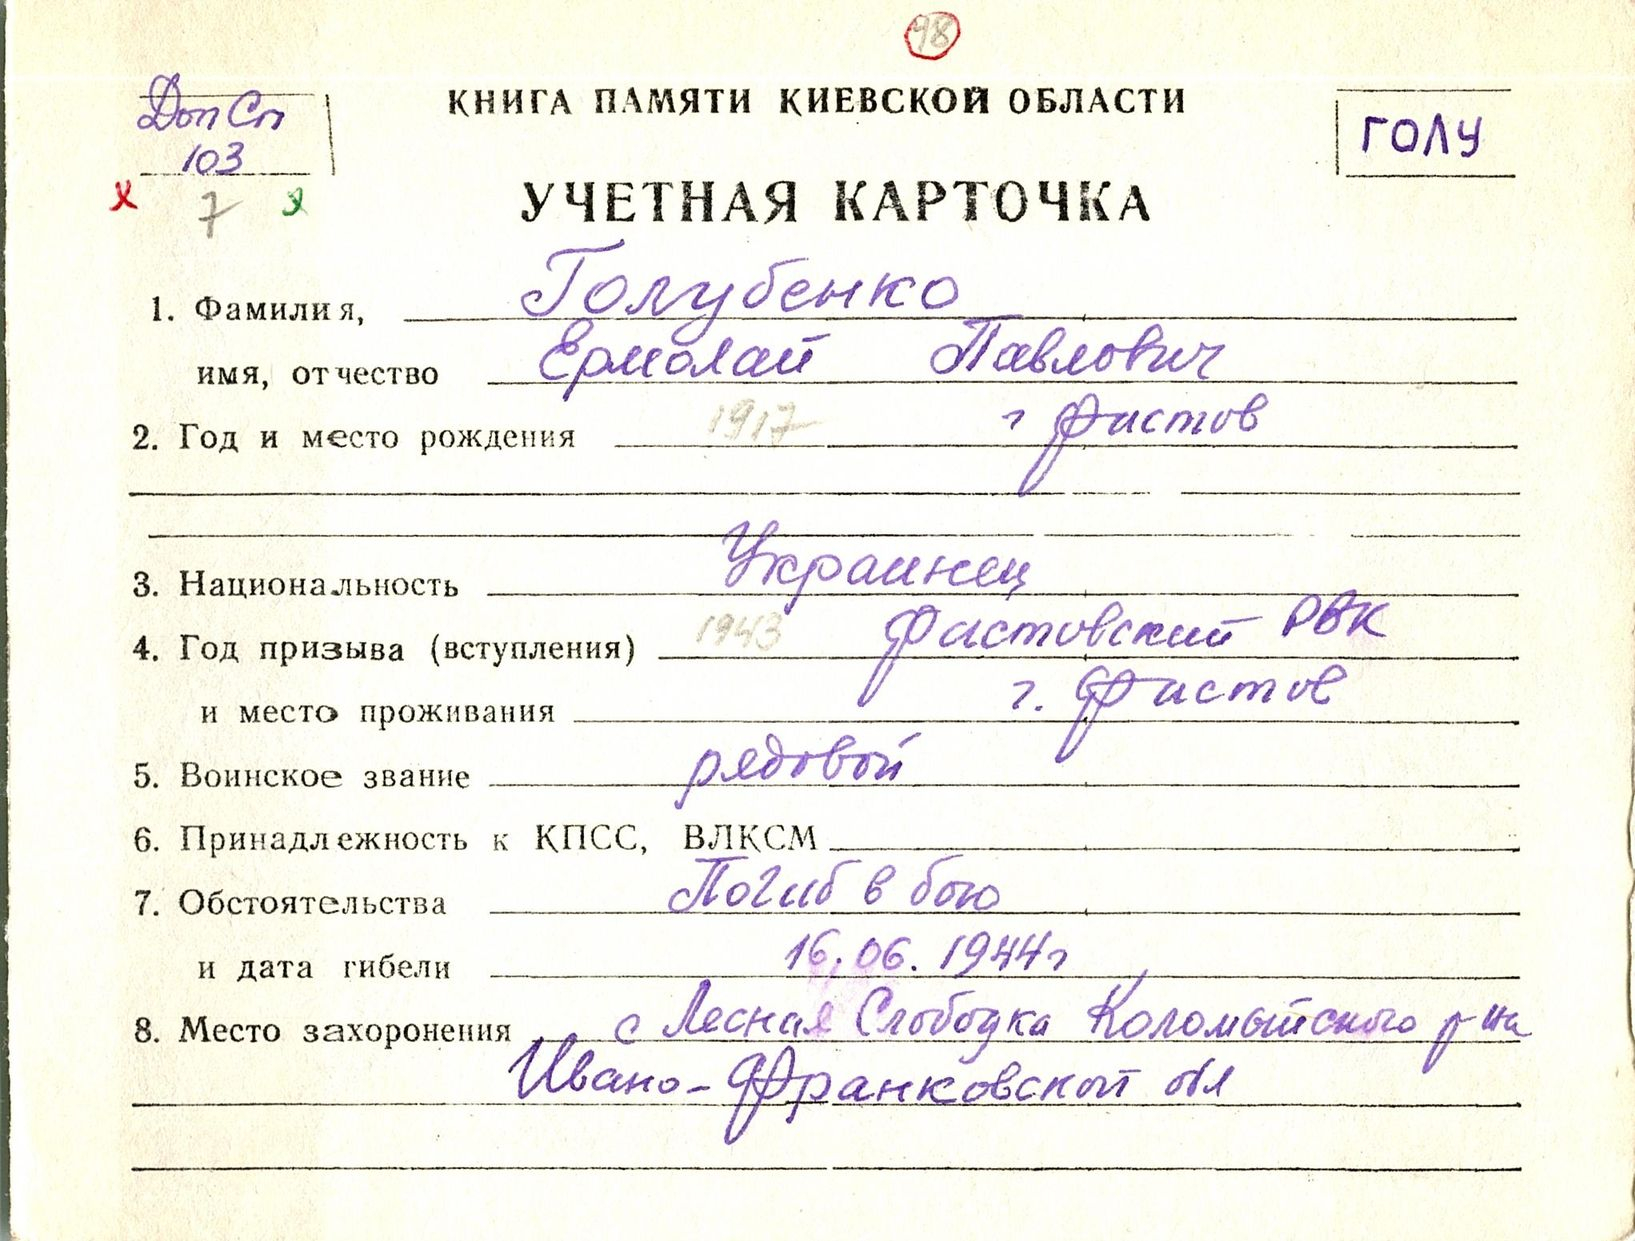 98
Доп Сп
103
КНИГА ПАМЯТИ КИЕВСКОЙ ОБЛАСТИ
ГОЛУ
х 7 х
УЧЕТНАЯ КАРТОЧКА
1. Фамилия, Голубенко
имя, отчество Ермолай Павлович
2. Год и место рождения 1917 г Фастов
3. Национальность Украинец
4. Год призыва (вступления) 1943 Фастовский РВК
и место проживания г. Фастов
5. Воинское звание рядовой
6. Принадлежность к КПСС, ВЛКСМ
7. Обстоятельства Погиб в бою
и дата гибели 16.06.1944г
8. Место захоронения с Лесная Слободка Коломыйского р-на
Ивано-Франковской обл